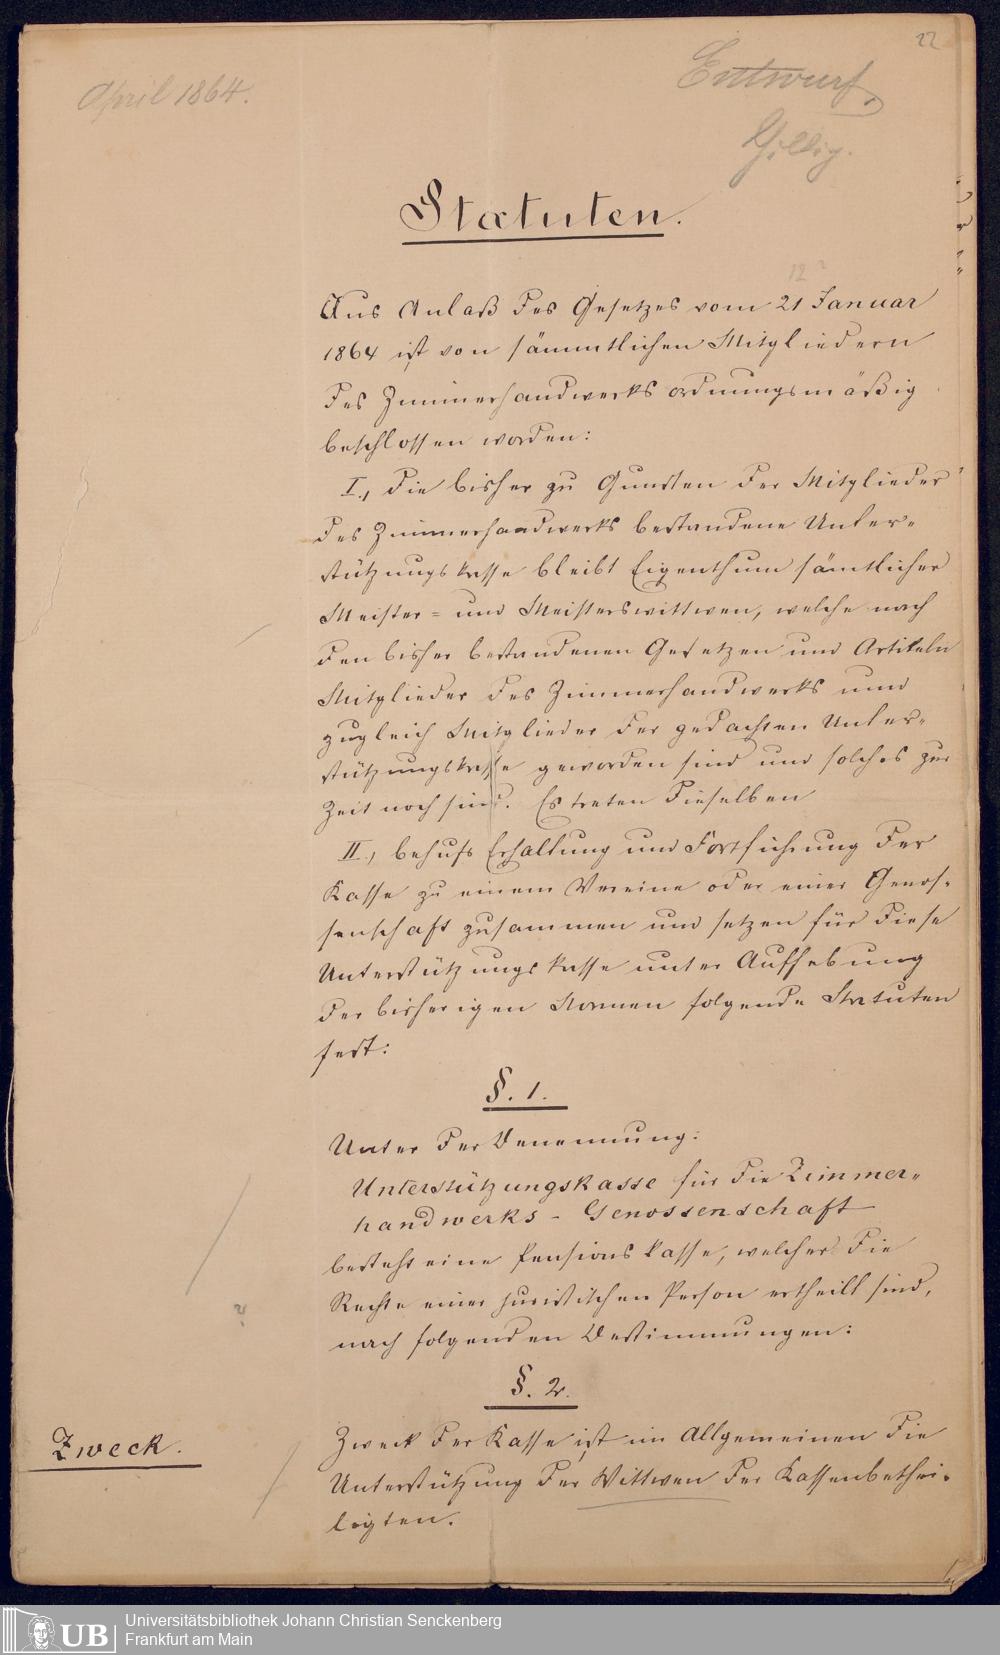 22
April 1864.
Entwurf.
Statuten.
12 ?
Aus Anlaß des Gesetzes vom 21 Januar
1864 ist von sämmtlichen Mitgliedern
des Zimmerhandwerks ordnungsmäßig
beschlossen worden:
I., die bisher zu Gunsten der Mitglieder
des Zimmerhandwerks bestandene Unter-
stützungskasse bleibt Eigenthum sämtlicher
Meister- und Meisterswittwen, welche nach
den bisher bestandenen Gesetzen und Artikeln
Mitglieder des Zimmerhandwerks und
zugleich Mitglieder der gedachten Unter-
stützungskasse geworden sind und solches zur
Zeit noch sind. Es treten dieselben
II., behufs Erhaltung und Fortführung der
Kasse zu einem Vereine oder einer Genos-
senschaft zusammen und setzen für diese
Unterstützungskasse unter Aufhebung
der bisherigen Normen folgende Statuten
fest:
§. 1.
Unter der Benennung:
Unterstützungskasse für die Zimmer-
handwerks-Genossenschaft
besteht eine Pensionskasse, welcher die
Rechte einer juristischen Person ertheilt sind,
nach folgenden Bestimmungen:
?
§. 2.
Zweck.
Zweck der Kasse ist im Allgemeinen die
Unterstützung der Wittwen der Kassenbethei-
ligten.
UB
Universitätsbibliothek Johann Christian Senckenberg
Frankfurt am Main